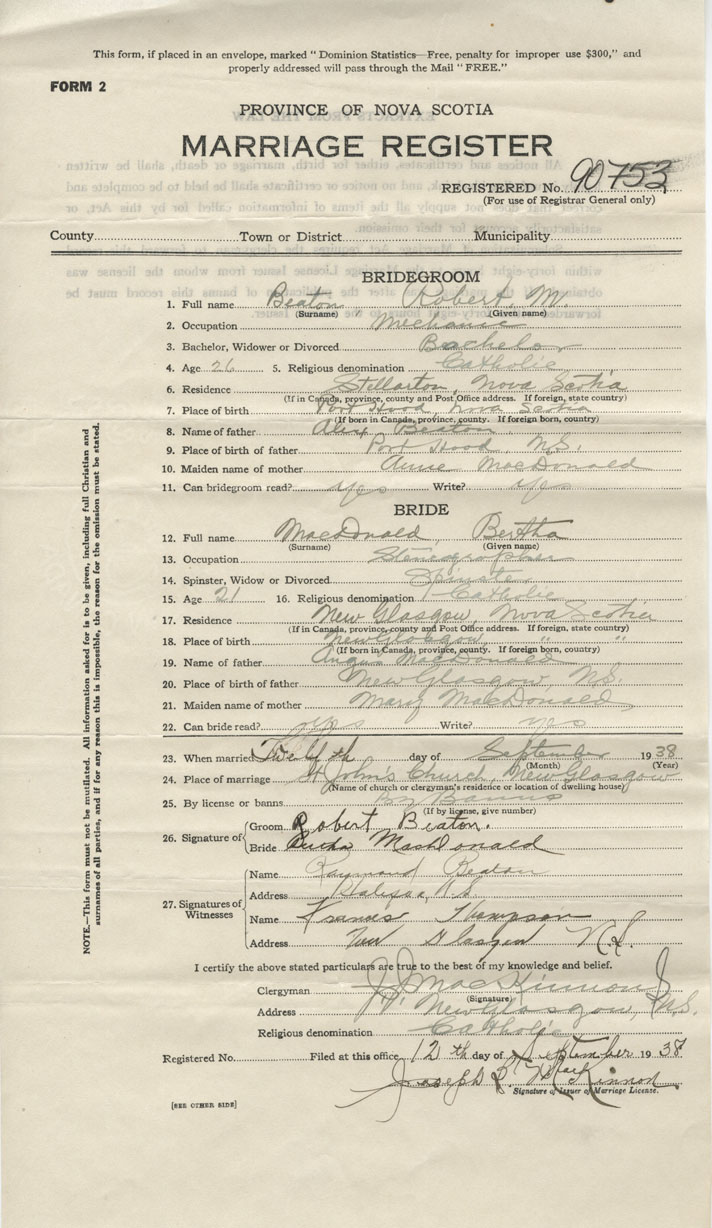 This form, if placed in an envelope, marked "Dominion Statistics—Free, penalty for improper use $300," and
properly addressed will pass through the Mail "FREE."
FORM 2
PROVINCE OF NOVA SCOTIA
MARRIAGE REGISTER
REGISTERED No. 90753
(For use of Registrar General only)
County Town or District Municipality
BRIDEGROOM
1. Full name Beaton, Robert M
(Surname) (Given name)
2. Occupation Mechanic
3. Bachelor, Widower or Divorced Bachelor
4. Age 26 5. Religious denomination Catholic
6. Residence Stellarton, Nova Scotia
(If in Canada, province, county and Post Office address. If foreign, state country)
7. Place of birth Port Hood, Nova Scotia
(If born in Canada, province, county. If foreign born, country)
8. Name of father Alex Beaton
9. Place of birth of father Port Hood, N.S.
10. Maiden name of mother Annie MacDonald
11. Can bridegroom read? yes Write? yes
BRIDE
12. Full name MacDonald, Bertha
(Surname) (Given name)
13. Occupation Stenographer
14. Spinster, Widow or Divorced Spinster
15. Age 21 16. Religious denomination Catholic
17. Residence New Glasgow, Nova Scotia
(If in Canada, province, county and Post Office address. If foreign, state country)
18. Place of birth New Glasgow, " "
(If born in Canada, province, county. If foreign born, country)
19. Name of father Angus MacDonald
20. Place of birth of father New Glasgow, N.S.
21. Maiden name of mother Mary MacDonald
22. Can bride read? yes Write? yes
23. When married Twelfth day of September 1938
(Month) (Year)
24. Place of marriage St John's Church, New Glasgow
(Name of church or clergyman's residence or location of dwelling house)
25. By license or banns By Banns
(If by license, give number)
26. Signature of
Groom Robert Beaton.
Bride Bertha MacDonald
27. Signatures of Witnesses
Name Raymond Beaton
Address Halifax, N.S.
Name Frances Thompson
Address New Glasgow N.S.
I certify the above stated particulars are true to the best of my knowledge and belief.
Clergyman J. J. MacKinnon
(Signature)
Address New Glasgow, N.S.
Religious denomination Catholic
Registered No. Filed at this office 12th day of September 1938
Joseph B. MacKinnon
Signature of Issuer of Marriage License.
[SEE OTHER SIDE]
NOTE.—This form must not be mutilated. All information asked for is to be given, including full Christian and
surnames of all parties, and if for any reason this is impossible, the reason for the omission must be stated.